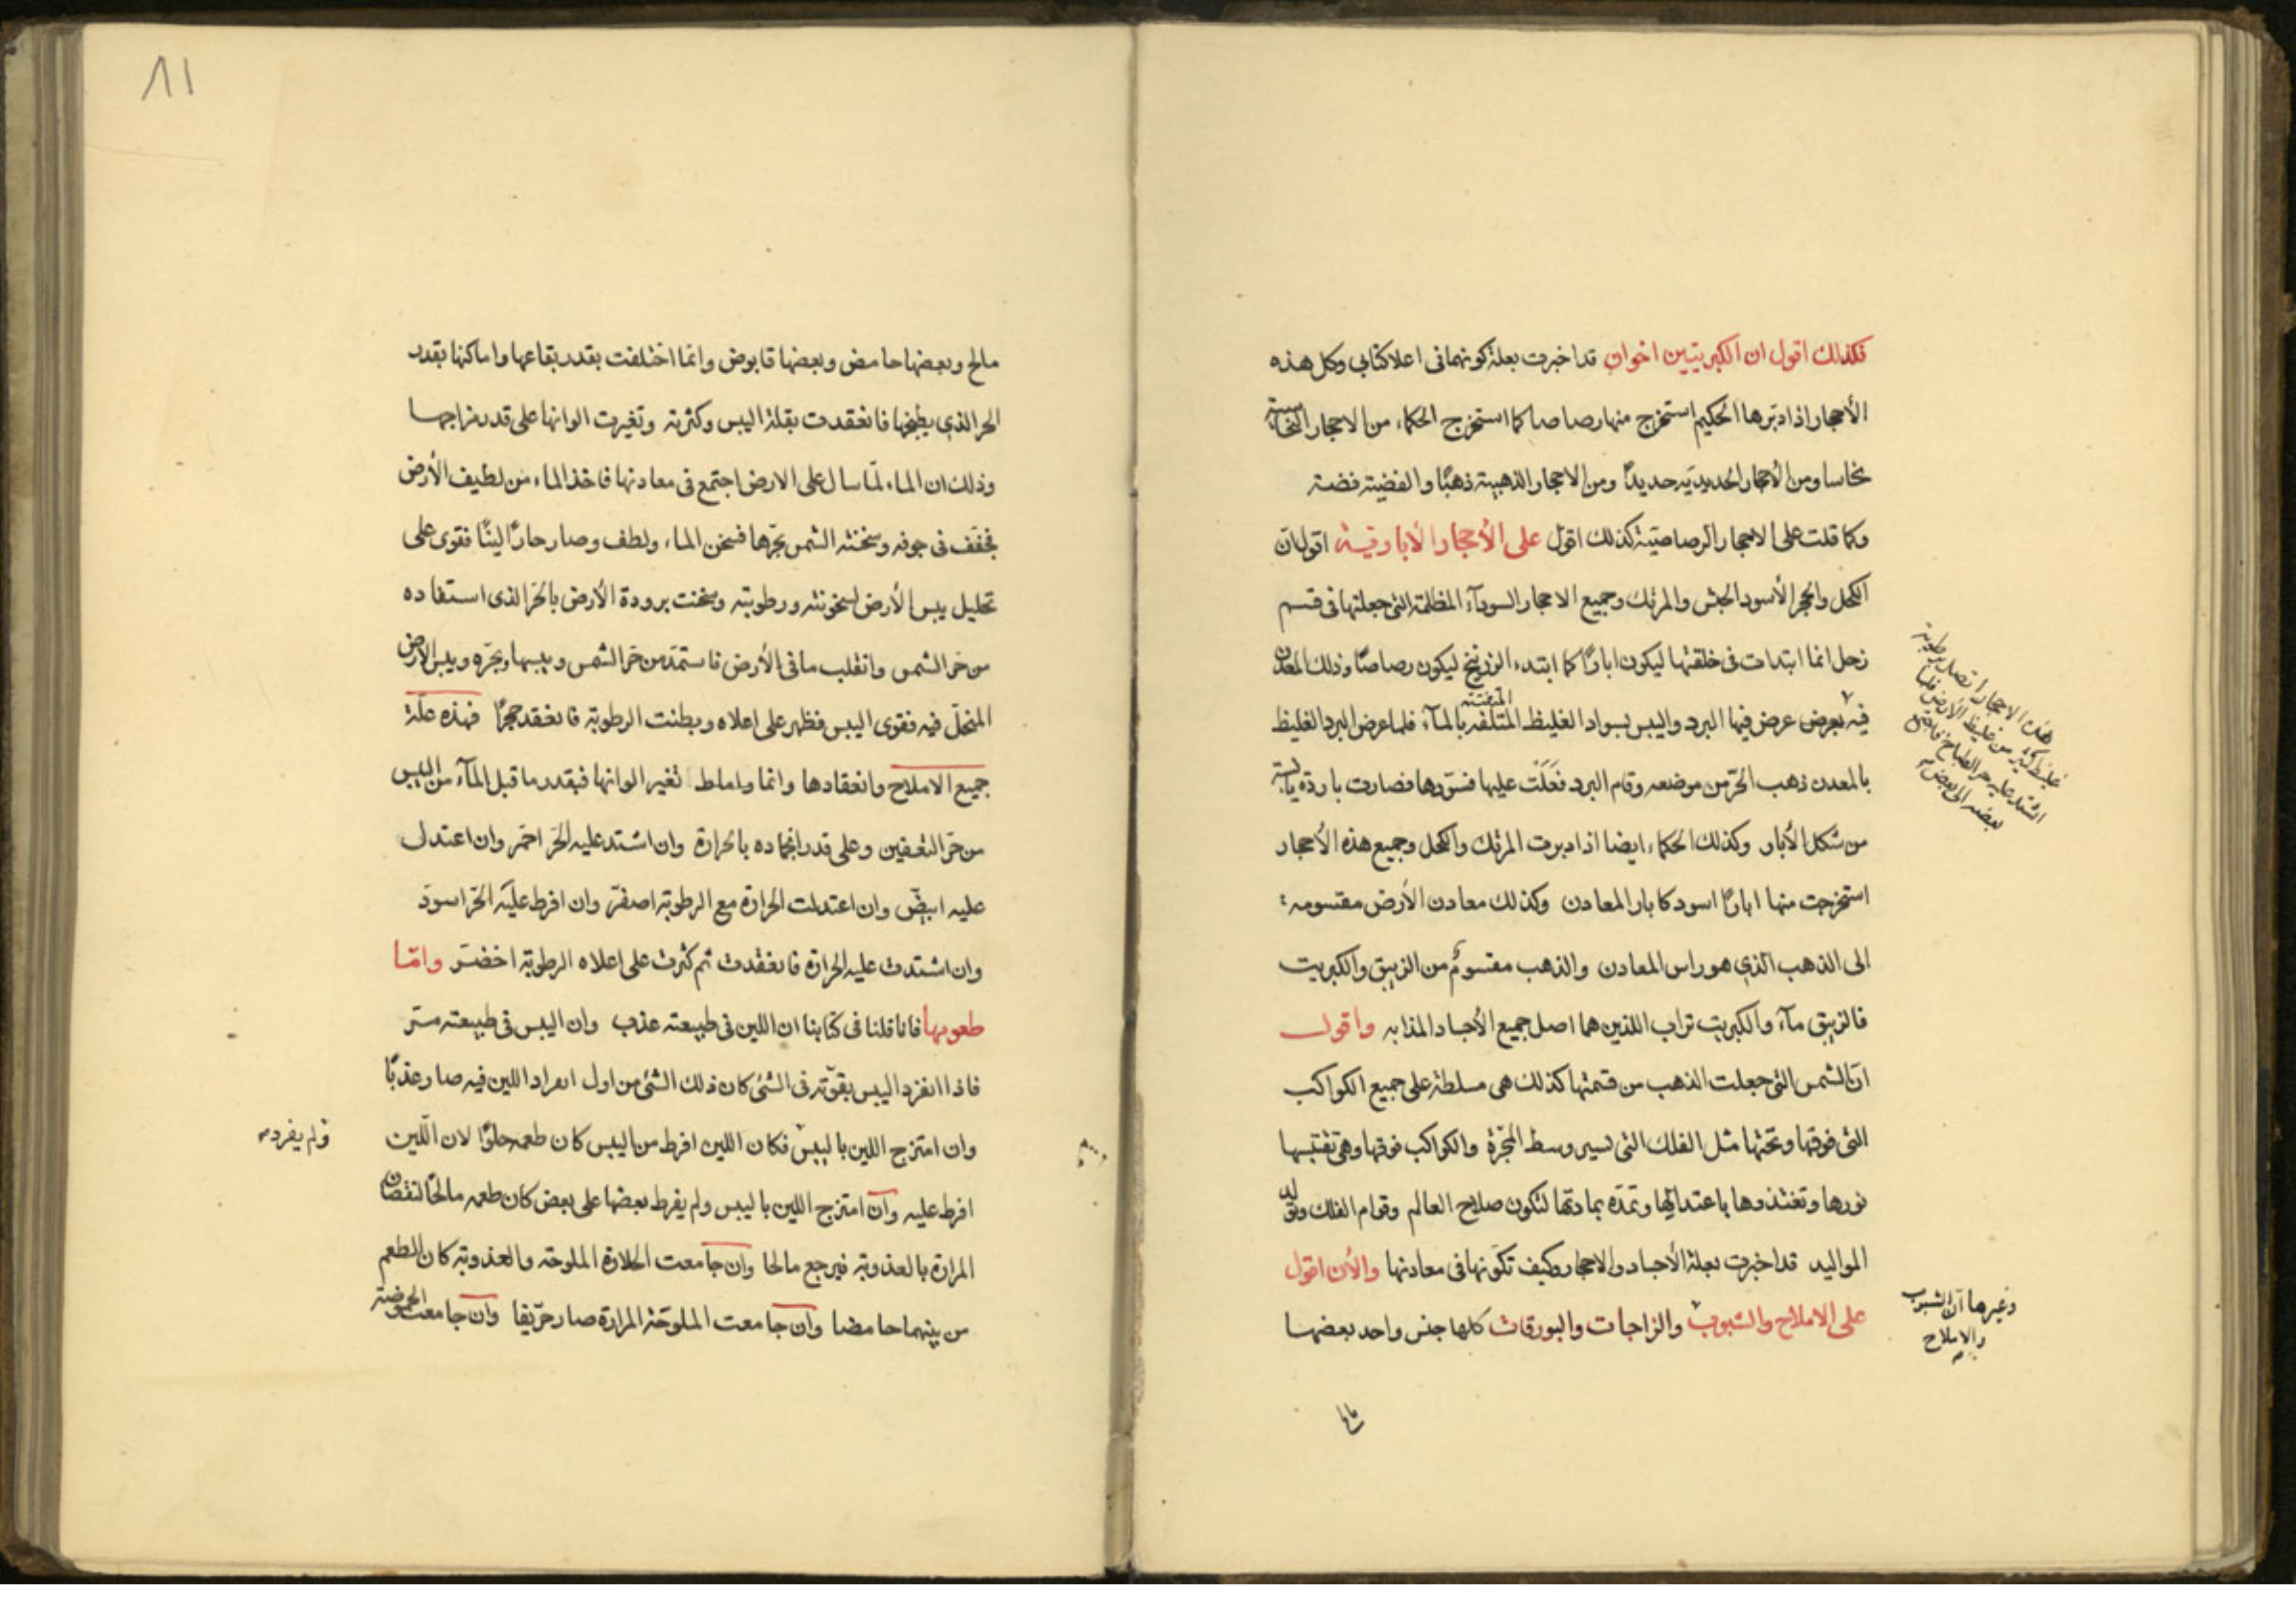 فكذلك اقول ان الكبريتين اخوان قد اخبرت بعلة كونهما فى اعلا كتابي وكل هذه
الأحجار اذا دبّرها الحكيم استخرج منها رصاصا كما استخرج الحكماء من الاحجار النحاسية
نحاسا ومن الأحجار الحديديّة حديدًا ومن الاحجار الذهبية ذهبًا والفضية فضة
وكما قلت على الاحجار الرصاصيّة كذلك اقول على الأحجار الأبارقية اقول ان
الكحل والحجر الأسود الجش والمرتك وجميع الاحجار السودآء المظلمة التى جعلتها فى قسم
زحل انما ابتدات فى خلقتها ليكون ابارًا كما ابتدء الزرنيخ ليكون رصاصًا وذلك المعدن
فيه بعرض عرض فيها البرد واليبس بسواد الغليظ المتلفه بالمآء فلما عرض البرد الغليظ
المتفتتة
بالمعدن ذهب الحرّ من موضعه وقام البرد فغلت عليها فسوّدها فصارت باردة يابسة
من شكل الأبار وكذلك الحكماء ايضا اذا دبرت المرتك والكحل وجميع هذه الأحجار
استخرجت منها ابارًا اسود كابار المعادن وكذلك معادن الأرض مقسومه
الى الذهب الذي هو راس المعادن والذهب مقسومٌ من الزيبق والكبريت
فالزيبق مآء والكبريت تراب اللذين هما اصل جميع الأجساد المذابه واقول
انّ الشمس التى جعلت الذهب من قسمتها كذلك هى مسلطة على جميع الكواكب
التى فوقها وتحتها مثل الفلك التى تسير وسط المجرّة والكواكب فوقها وهى تقتبسها
نورها وتغتذوها باعتدالها وتمدّه بمادتها لتكون صلاح العالم وقوام الفلك وتوليد
المواليد قد اخبرت بعلة الأجساد والاحجار وكيف تكوّنها فى معادنها والأن اقول
على الاملاح والشبوب والزاجات والبورقات كلها جنس واحد بعضها
هذه الاحجار
غليظ من غليظ الأرض فلما
اشتد عليه حر الطباخ
بعضه الى بعض
وغيرها ان الشبوب
والاملاح
مالح
11
مالح وبعضها حامض وبعضها قابوض وانما اختلفت بقدر بقاعها واماكنها بقدر
الحر الذي يطبخها فانعقدت بقلة اليبس وكثرته وتغيرت الوانها على قدر مزاجها
وذلك ان الماء لمّا سال على الارض اجتمع فى معادنها فاخذ الماء من لطيف الأرض
فجفف فى جوفه وسخنته الشمس بحرّها فسخن الماء ولطف وصار حارًّا لينًا فقوى على
تحليل يبس الأرض لسخونته ورطوبته وسخنت برودة الأرض بالحر الذى استفاده
من حر الشمس وانقلب ما فى الأرض فاستمدّ من حر الشمس ويبسها وبحرّه ويبس الارض
المنحلّ فيه فقوى اليبس فظهر على اعلاه وبطنت الرطوبة فانعقد حجرًا فهذه علّة
جميع الاملاح وانعقادها وانما تغير الوانها فبقدر ما قبل المآء من اليبس
من حرّ التعفين وعلى قدر انجماده بالحرارة وان اشتد عليه الحرّ احمرّ وان اعتدل
عليه ابيضّ وان اعتدلت الحرارة مع الرطوبة اصفرّ وان افرط عليه الحرّ اسودّ
وان اشتدت عليه الحرارة فانعقدت ثم كثرت على اعلاه الرطوبة اخضرّ وامّا
طعومها فانا قلنا فى كتابنا ان اللين فى طبيعته عذب وان اليبس فى طبيعته مرّ
فاذا انفرد اليبس بقوّته فى الشئ كان ذلك الشئ من اول انفراد اللين فيه صار عذبًا
وان امتزج اللين باليبس فكان اللين افرط من اليبس كان طعمه حلوًا لان اللّين
ولم يفرد
افرط عليه وان امتزج اللين باليبس ولم يفرط بعضها على بعض كان طعمه مالحًا لنقصان
المرارة بالعذوبة فيرجع مالحا وان جامعت الحلاوة الملوحة والعذوبة كان الطعم
من بينهما حامضا وان جامعت الملوحة المرارة صار حرّيفا وان جامعت الحموضة